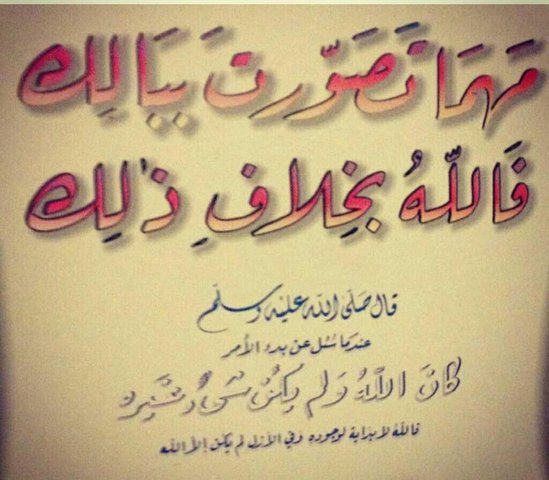 مَهمَا تَصَوَّرتَ بِبَالِك
فَاللّٰهُ بِخِلَافِ ذٰلِك
قال صَلّى اللّه عليه وسلّم
عندما سُئل عن بدء الأمر
كانَ اللّهُ وَلم يكُن شىءٌ غيره
فاللّهُ لا بداية لوجوده وفي الأزل لم يكن إلا اللّه